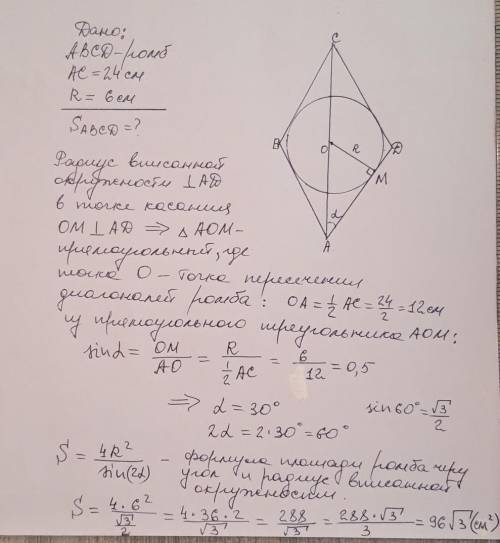 Дано:
ABCD-ромб
AC=24 см
R= 6 см
S_ABCD=?
C
B
O
R
D
M
α
A
Радиус вписанной
окружности ⊥AD
в точке касания
OM⊥AD ⇒ △AOM-
прямоугольный, где
точка O - точка пересечения
диагоналей ромба: OA=1/2 AC=24/2=12 см
из прямоугольного треугольника AOM:
sinα = OM/AO = R/(1/2 AC) = 6/12 = 0,5
⇒ α = 30° sin60°=√3/2
2α = 2·30°=60°
S = 4R²/sin(2α) - формула площади ромба через
угол и радиус вписанной
окружности.
S = 4·6²/(√3/2) = 4·36·2/√3 = 288/√3 = 288·√3/3 = 96√3 (см²)